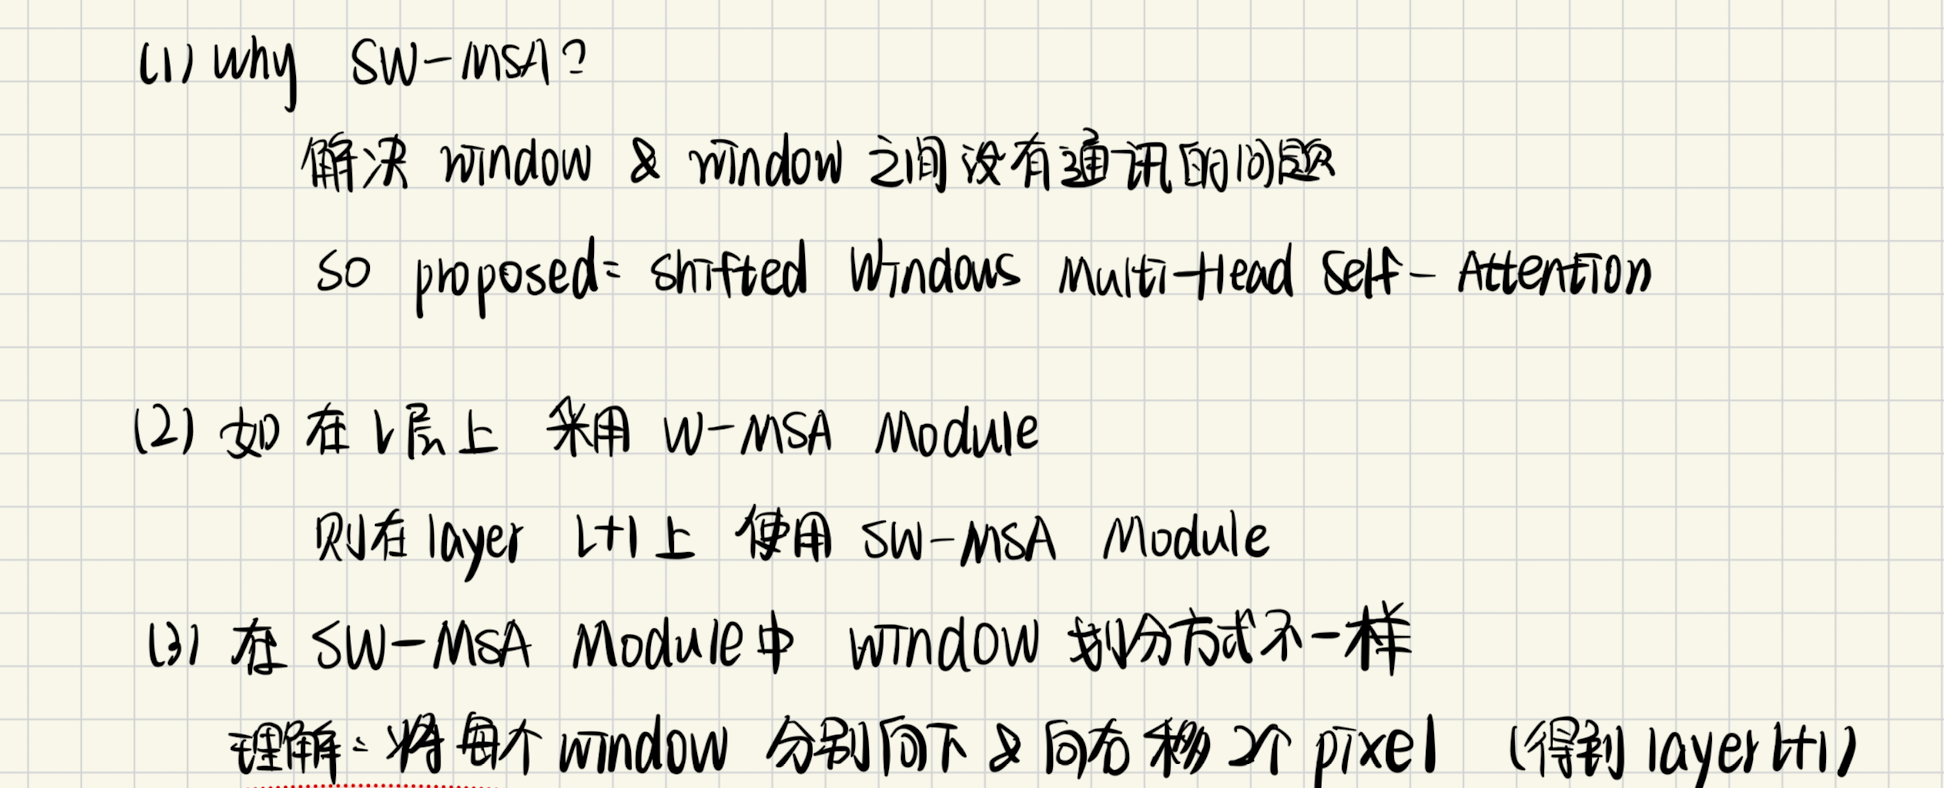 (1) why SW-MSA?
解决 window & window 之间没有通讯的问题
so proposed: Shifted Windows Multi-Head Self-Attention
(2) 如在 L层上 采用 W-MSA Module
则在 layer L+1上 使用 SW-MSA Module
(3) 在 SW-MSA Module中 window 划分方式不一样
理解: 将每个 window 分别向下 & 向右移 2个 pixel (得到 layer L+1)